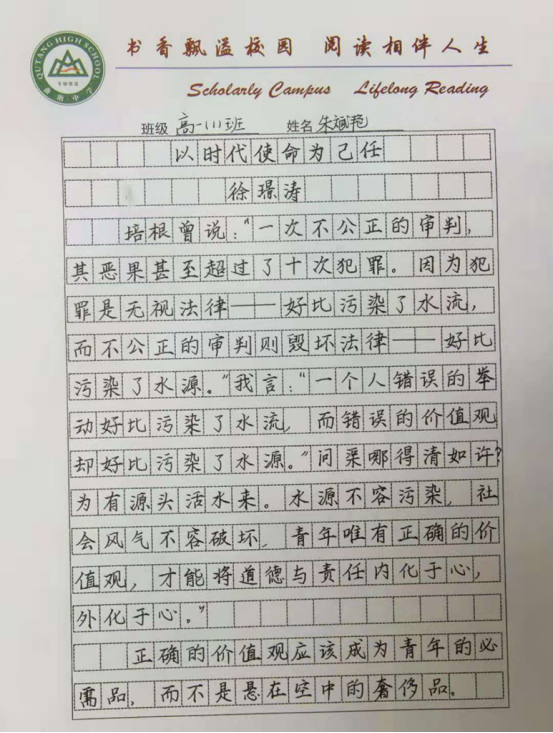 书香飘溢校园 阅读相伴人生
QUTANG HIGH SCHOOL
1952
曲塘中学
Scholarly Campus Lifelong Reading
班级 高一(11)班 姓名 朱斌艳
以时代使命为己任
徐璟涛
培根曾说:“一次不公正的审判,
其恶果甚至超过了十次犯罪。因为犯
罪是无视法律——好比污染了水流,
而不公正的审判则毁坏法律——好比
污染了水源。”我言:“一个人错误的举
动好比污染了水流,而错误的价值观
却好比污染了水源。”问渠哪得清如许?
为有源头活水来。水源不容污染,社
会风气不容破坏,青年唯有正确的价
值观,才能将道德与责任内化于心,
外化于心。”
正确的价值观应该成为青年的必
需品,而不是悬在空中的奢侈品。